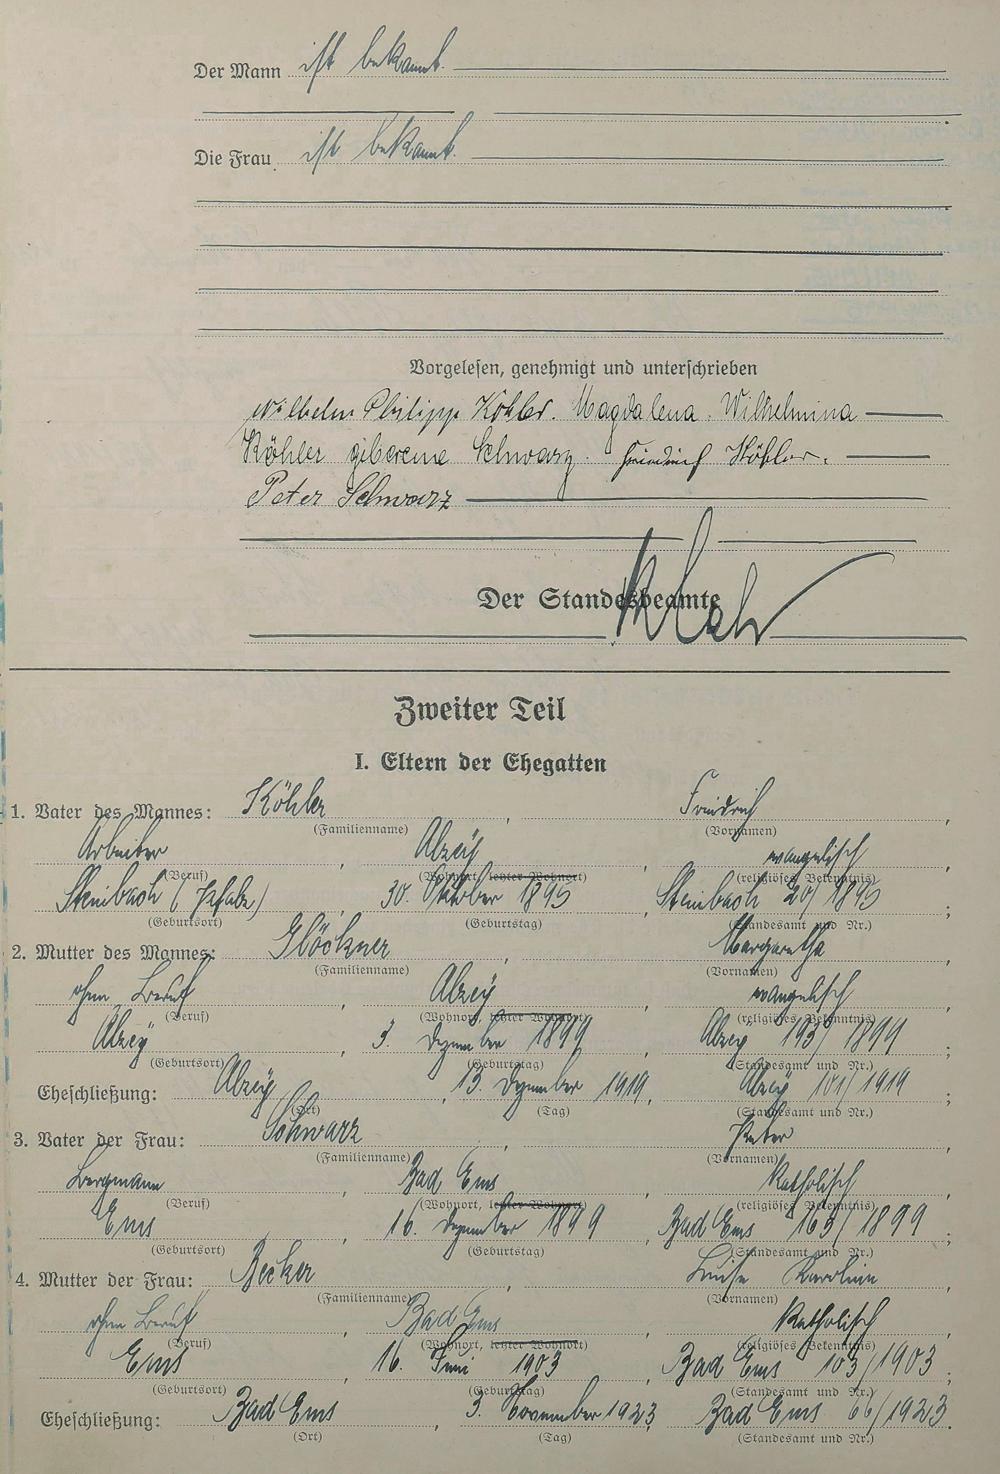 Der Mann ist bekannt.
Die Frau ist bekannt.
Vorgelesen, genehmigt und unterschrieben
Wilhelm Philipp Köhler. Magdalena. Wilhelmina
Köhler geborene Schwarz. Friedrich Köhler.
Peter Schwarz
Der Standesbeamte
Zweiter Teil
I. Eltern der Ehegatten
1. Vater des Mannes: Köhler, Friedrich,
(Familienname) (Vornamen)
Arbeiter, Alzey, evangelisch
(Beruf) (Wohnort, letzter Wohnort) (religiöses Bekenntnis)
Steinbach (Pfalz), 30. Oktober 1895, Steinbach 20/1895;
(Geburtsort) (Geburtstag) (Standesamt und Nr.)
2. Mutter des Mannes: Glöckner, Margaretha,
(Familienname) (Vornamen)
ohne Beruf, Alzey, evangelisch
(Beruf) (Wohnort, letzter Wohnort) (religiöses Bekenntnis)
Alzey, 3. Dezember 1899, Alzey 193/1899
(Geburtsort) (Geburtstag) (Standesamt und Nr.)
Eheschließung: Alzey, 13. Dezember 1919, Alzey 101/1919;
(Ort) (Tag) (Standesamt und Nr.)
3. Vater der Frau: Schwarz, Peter,
(Familienname) (Vornamen)
Bergmann, Bad Ems, Katholisch
(Beruf) (Wohnort, letzter Wohnort) (religiöses Bekenntnis)
Ems, 16. Dezember 1899, Bad Ems 163/1899;
(Geburtsort) (Geburtstag) (Standesamt und Nr.)
4. Mutter der Frau: Becker, Luise Karoline
(Familienname) (Vornamen)
ohne Beruf, Bad Ems, Katholisch
(Beruf) (Wohnort, letzter Wohnort) (religiöses Bekenntnis)
Ems, 16. Juni 1903, Bad Ems 103/1903;
(Geburtsort) (Geburtstag) (Standesamt und Nr.)
Eheschließung: Bad Ems, 3. November 1923, Bad Ems 66/1923.
(Ort) (Tag) (Standesamt und Nr.)